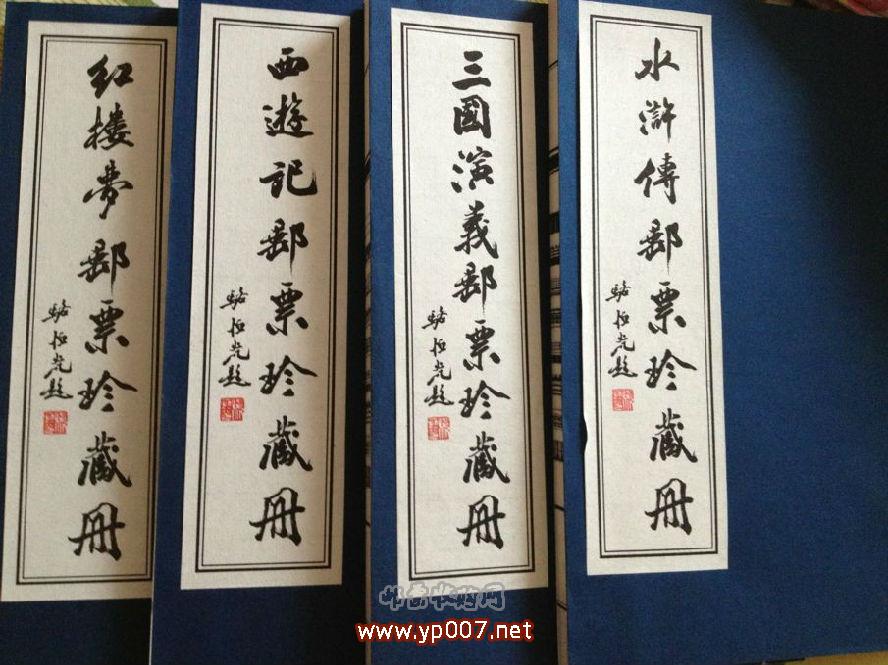 红楼夢郵票珍藏册
骆恒光题
西遊记郵票珍藏册
骆恒光题
三國演義郵票珍藏册
骆恒光题
水滸傳郵票珍藏册
骆恒光题
邮票收购网
www.yp007.net